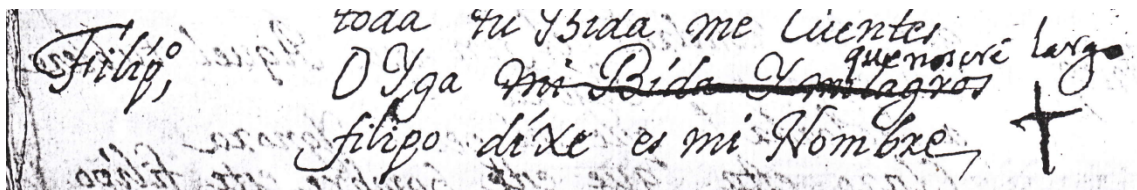 toda tu Bida me Cuentes
Filipo, OYga mi Bida Y milagros que no seré largo
filipo díxe es mi Nombre,